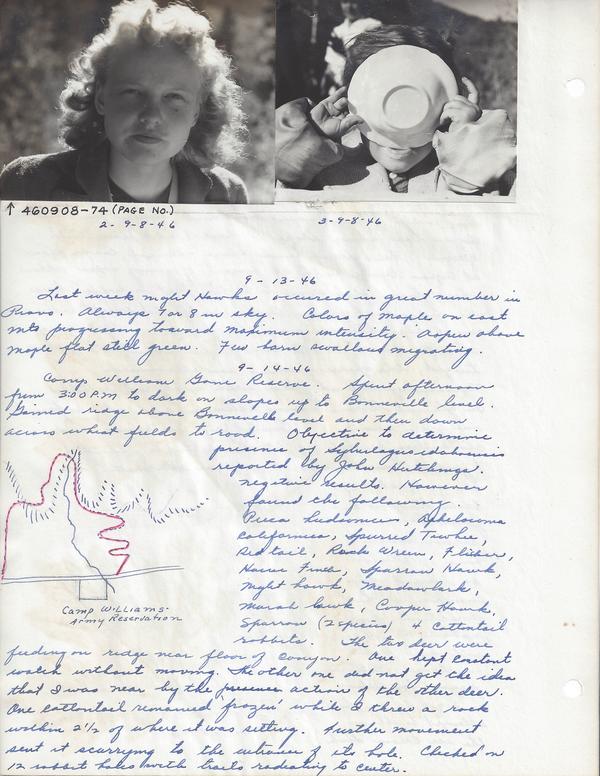 ↑ 460908-74 (PAGE NO.)
2- 9-8-46
3-9-8-46
9-13-46
Last week night Hawks occured in great number in
Provo. Always 7 or 8 in sky. Colors of maple on east
mts progressing toward maximum intensity. Aspen above
maple flat still green. Few barn swallows migrating.
9-14-46
Camp William Game Reserve. Spent afternoon
from 3:00 P.M to dark on slopes up to Bonneville level.
Gained ridge above Bonneville level and then down
across wheat fields to road. Objective to determine
presence of Sylvilagus idahoensis
reported by John Hutchings.
negative results. However
found the following.
Pica hudsonius, Aphelocoma
californica, Spurred Towhee,
Red tail, Rock Wren, Flicker,
House Finch, Sparrow Hawk,
Night hawk, Meadowlark,
Marsh hawk, Cooper Hawk,
Sparrow (2 species) 4 Cottontail
rabbits. The two deer were
Camp Williams-
Army Reservation
feeding on ridge near floor of canyon. One kept constant
watch without moving. The other one did not get the idea
that I was near by the presence action of the other deer.
One cottontail remained 'frozen' while I threw a rock
within 2 1/2 of where it was setting. Further movement
sent it scurrying to the entrance of its hole. Checked on
12 rabbit holes with trails radiating to center.